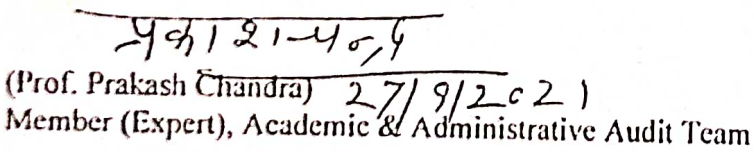 प्रकाश चन्द्र
(Prof. Prakash Chandra) 27/9/2021
Member (Expert), Academic & Administrative Audit Team